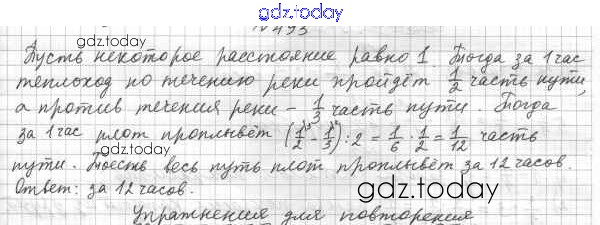 gdz.today
№493
gdz.today
Пусть некоторое расстояние равно 1. Тогда за 1 час
теплоход по течению реки пройдёт 1/2 часть пути,
а против течения реки - 1/3 часть пути. Тогда
за 1 час плот проплывёт (1/2 - 1/3) : 2 = 1/6 · 1/2 = 1/12 часть
пути. Тоесть весь путь плот проплывёт за 12 часов.
gdz.today
Ответ: за 12 часов.
gdz.today
Упражнения для повторения